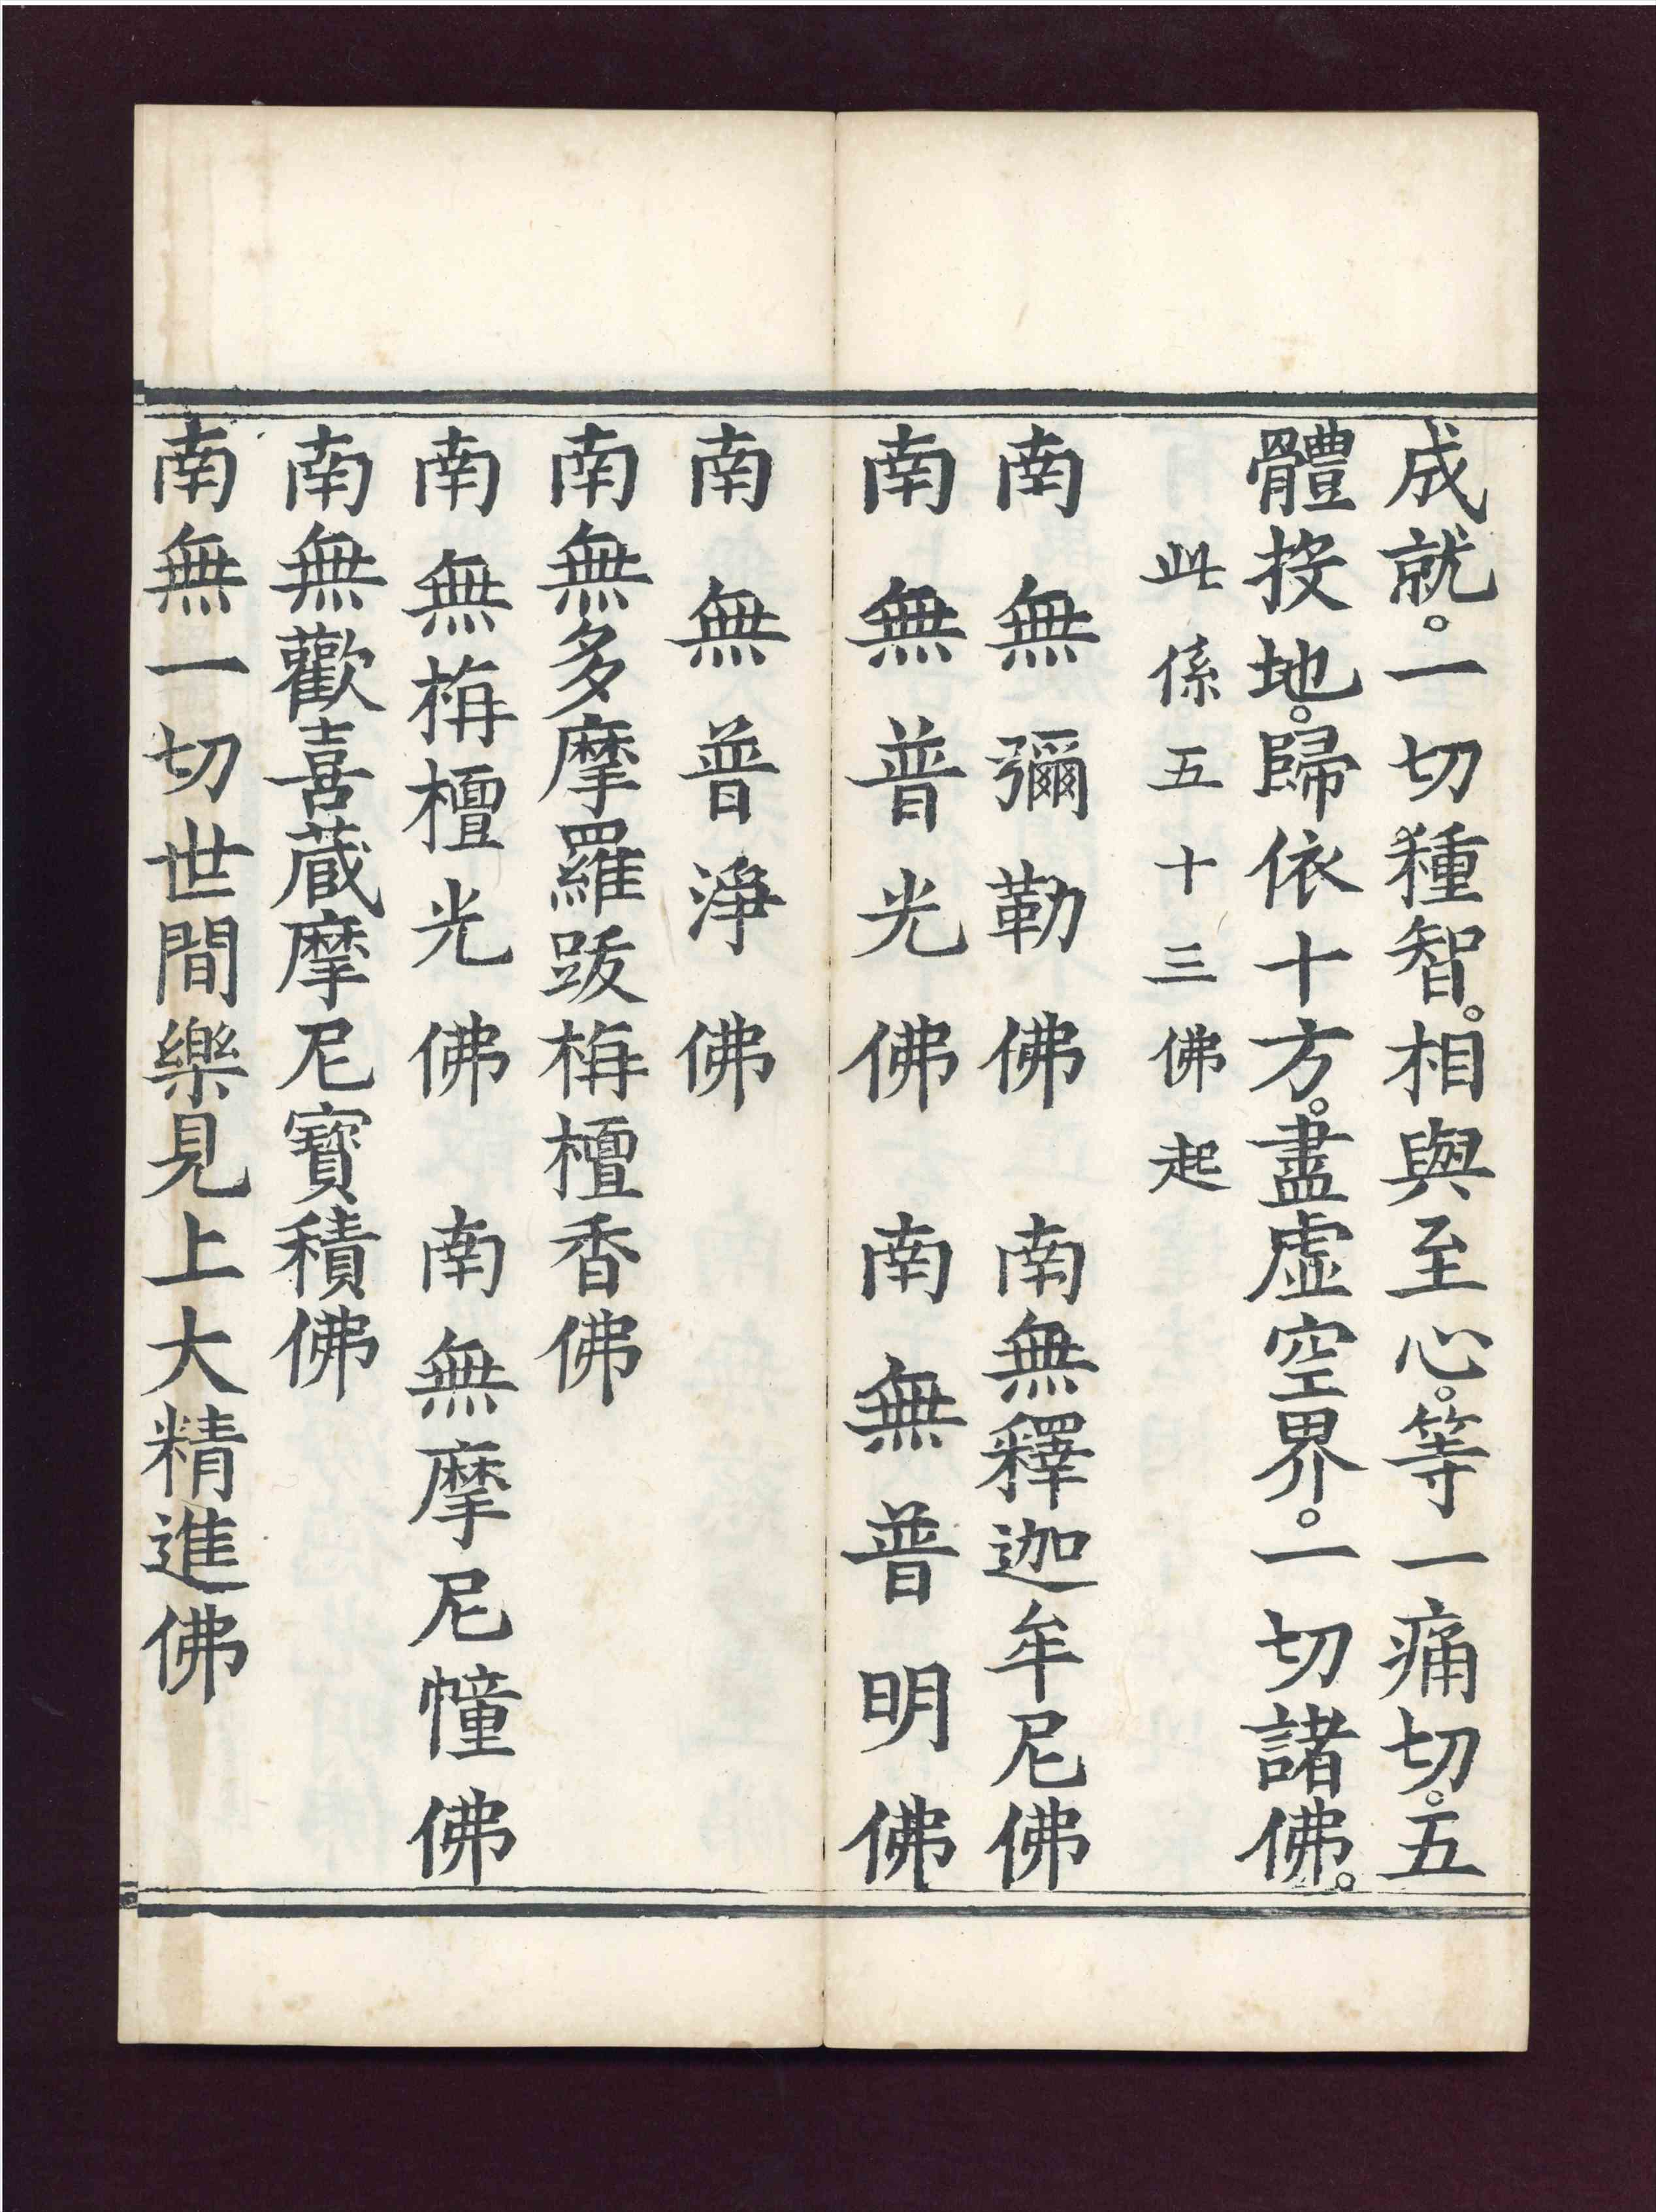 成就。一切種智。相與至心。等一痛切。五
體投地。歸依十方。盡虛空界。一切諸佛。
此係五十三佛起
南無彌勒佛 南無釋迦牟尼佛
南無普光佛 南無普明佛
南無普淨佛
南無多摩羅跋栴檀香佛
南無栴檀光佛 南無摩尼幢佛
南無歡喜藏摩尼寶積佛
南無一切世間樂見上大精進佛